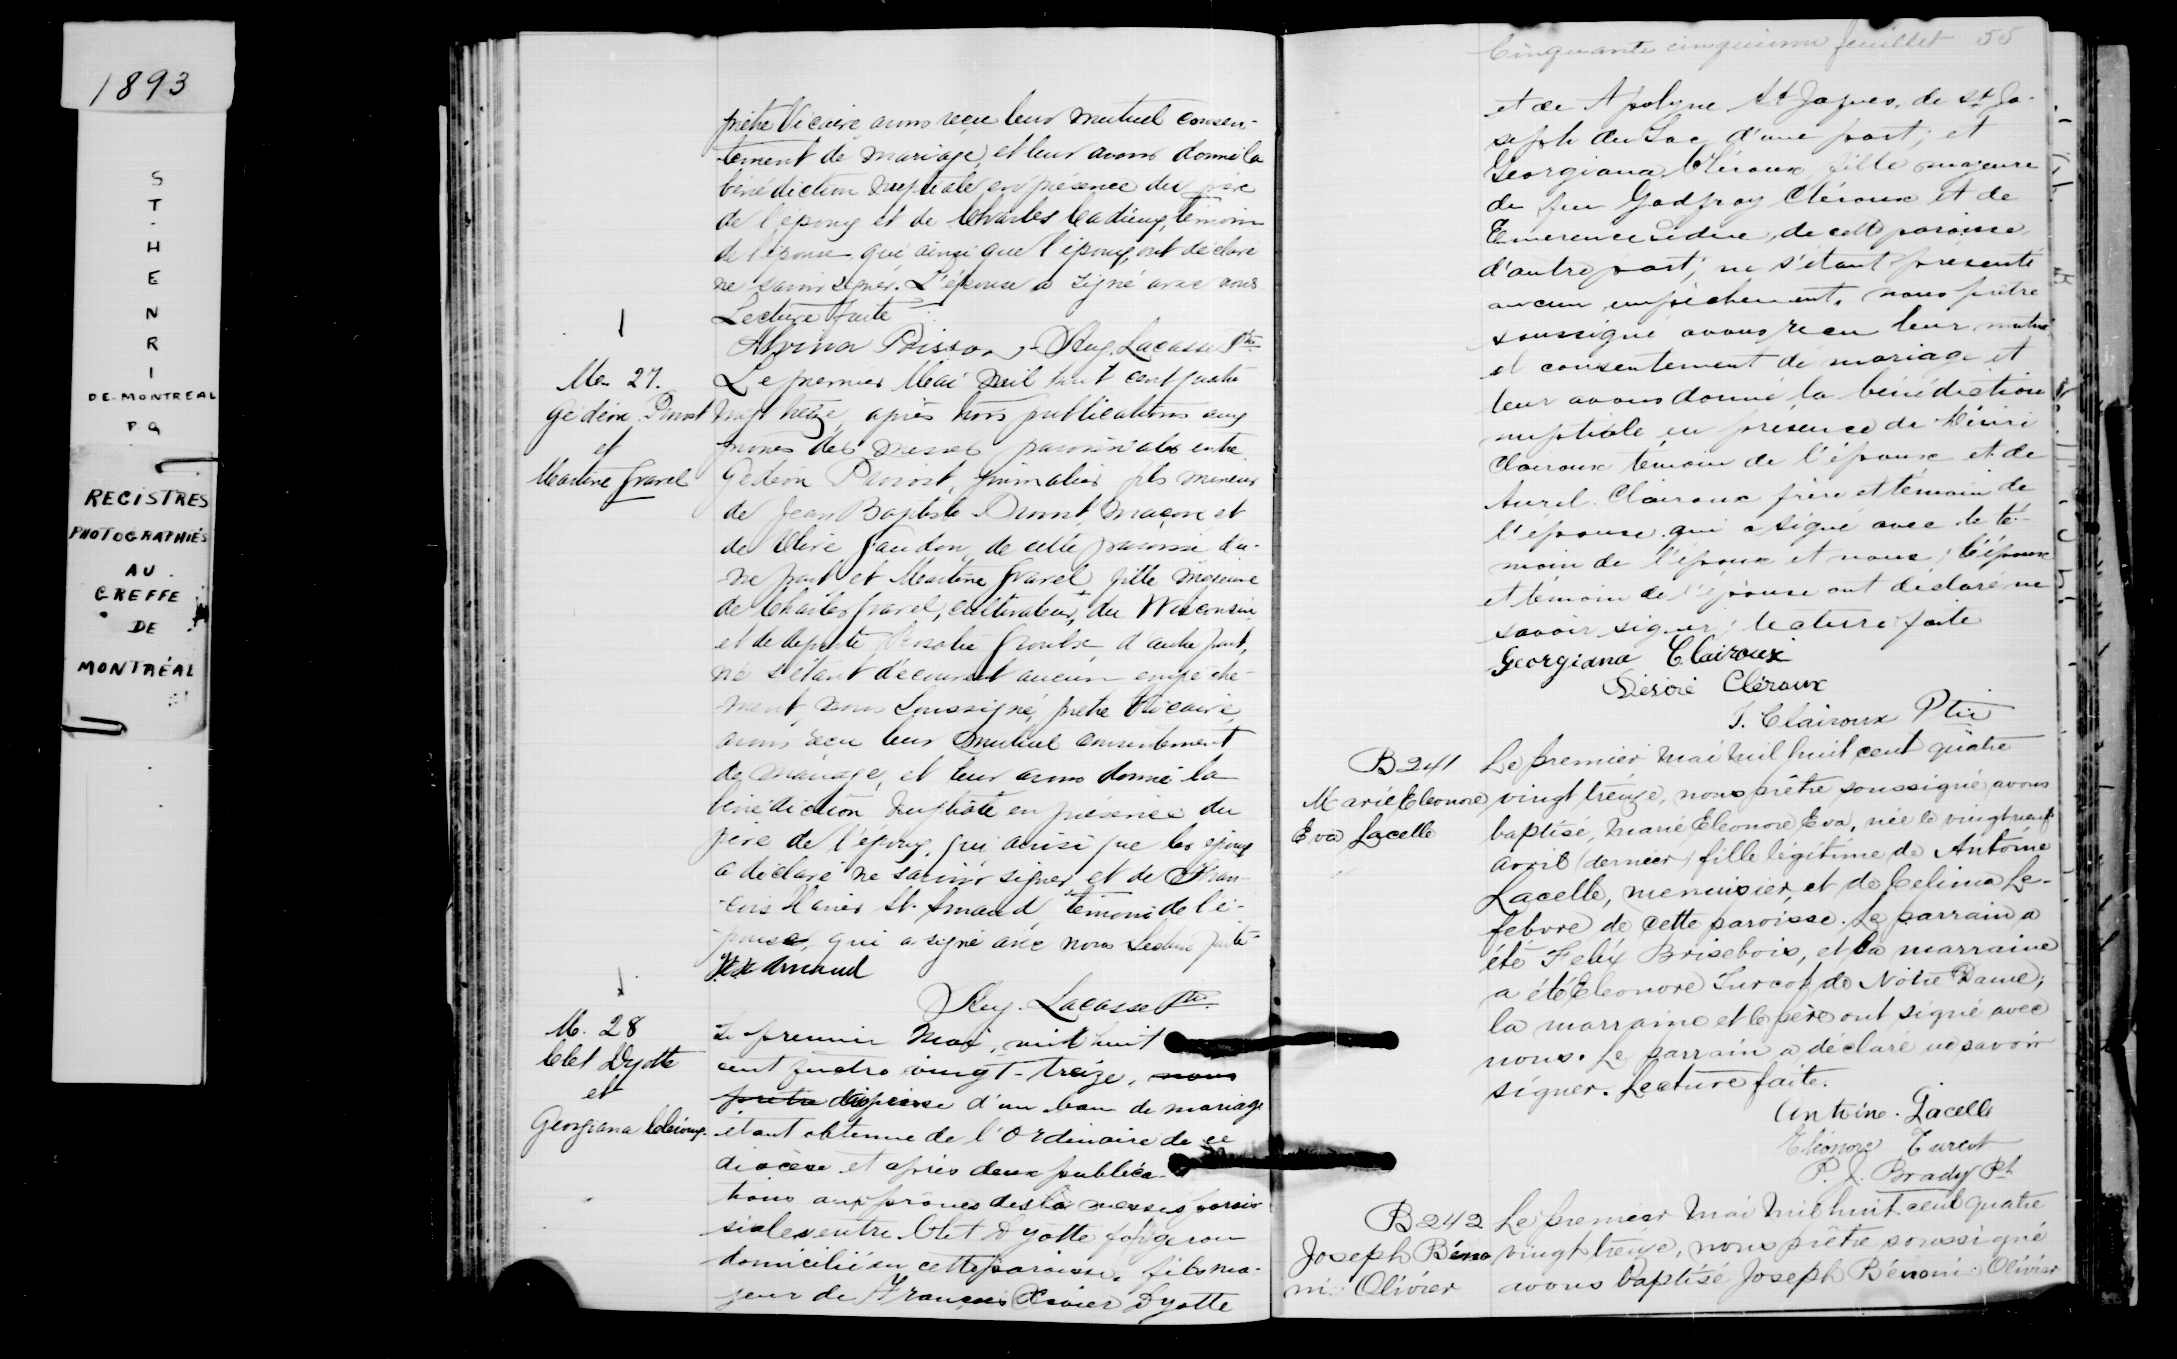 1893
ST. HENRI
DE MONTREAL
P Q
REGISTRES
PHOTOGRAPHIÉS
AU
GREFFE
DE
MONTRÉAL
prêtre Vicaire avons reçu leur mutuel consen-
tement de mariage, et leur avons donné la
bénédiction nuptiale en présence du père
de l'époux et de Charles Cadieux, témoin
de l'épouse qui ainsi que l'époux, ont déclaré
ne savoir signer. L'épouse a signé avec nous
Lecture faite
Alvina Poisson, Lacasse Ptre
M. 27.
Gédéon
et
Martine Gravel
Le premier Mai mil huit cent quatre
vingt treize, après trois publications aux
prônes des messes paroissiales entre
Gédéon fils mineur
de Jean Baptiste maçon et
de de cette paroisse d'u-
ne part et Martine Gravel fille majeure
de Charles Gravel, cultivateur, du Wisconsin
et de défunte Rosalie d'autre part,
ne s'étant découvert aucun empêche-
ment, nous soussigné, prêtre Vicaire,
avons reçu leur mutuel consentement
de mariage, et leur avons donné la
bénédiction nuptiale en présence du
père de l'époux, qui ainsi que les époux
a déclaré ne savoir signer, et de Fran-
çois Xavier St. Amand, témoin de l'é-
pouse, qui a signé avec nous Lecture faite
Amand
Lacasse Ptre
M. 28
Clet Dyotte
et
Georgiana
Le premier Mai, mil huit
cent quatre vingt-treize, nous
prêtre dispense d'un ban de mariage
étant obtenue de l'Ordinaire de ce
diocèse et après deux publica-
tions aux prônes des messes parois
siales entre Clet Dyotte forgeron
domicilié en cette paroisse, fils ma-
jeur de François Xavier Dyotte
Cinquante cinquième feuillet 55
et de Apolyne St Jaques, de St Jo-
seph du Lac d'une part; et
Georgiana Cléroux, fille majeure
de feu Godfroy Cléroux et de
Emerence de cette paroisse
d'autre part; ne s'étant présenté
aucun empêchement, nous prêtre
soussigné avons reçu leur mutu
el consentement de mariage et
leur avons donné la bénédiction
nuptiale en présence de
Clairoux témoin de l'époux et de
Aurel Clairoux frère et témoin de
l'épouse qui a signé avec le té-
moin de l'époux et nous; l'époux
et témoin de l'épouse ont déclaré ne
savoir signer; lecture faite
Georgiana Clairoux
Désiré Cléroux
J. Clairoux Ptre
B 241
Marie Eleonore
Eva Lacelle
Le premier mai mil huit cent quatre
vingt treize, nous prêtre soussigné avons
baptisé, Marie Eleonore Eva, née le vingt neuf
avril dernier, fille légitime de Antoine
Lacelle, menuisier, et de Celima Le-
febvre de cette paroisse. Le parrain a
été Felix Brisebois, et la marraine
a été Eleonore Turcot de Notre Dame;
la marraine et le père ont signé avec
nous. Le parrain a déclaré ne savoir
signer. Lecture faite.
Antoine Lacelle
Eléonore Turcot
P. J. Brady Pt
B 242
Joseph Béno
ni Olivier
Le premier Mai mil huit cent quatre
vingt treize, nous prêtre soussigné
avons baptisé Joseph Bénoni Olivier